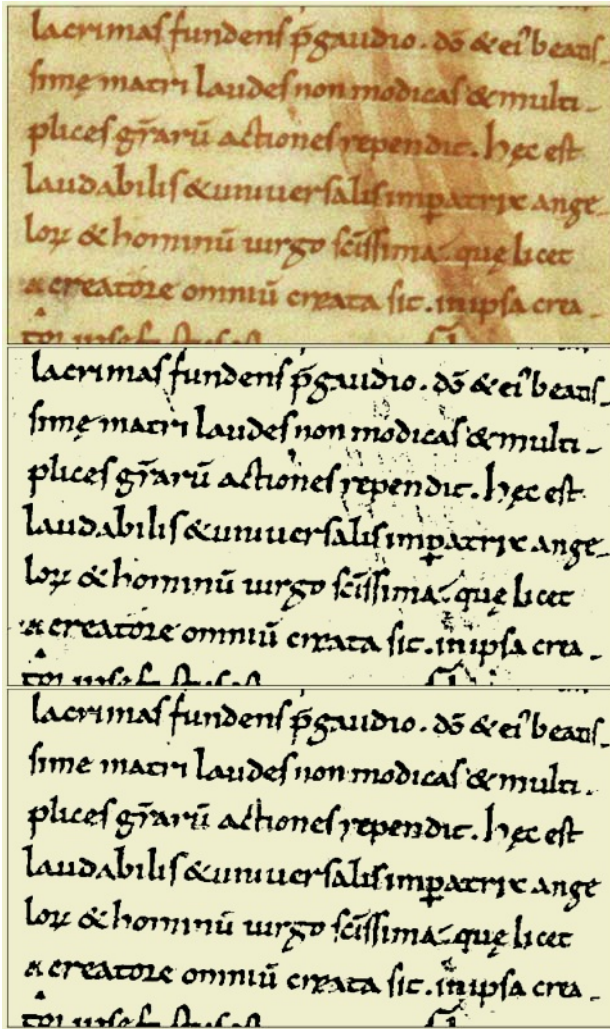 lacrimaſ fundenſ p̄ gaudio. dō & ei᾽ beatiſ-
ſimę matri laudeſ non modicaſ & multi-
pliceſ gr̄arū actioneſ rependit. hęc eſt
laudabiliſ & uniuerſaliſ imꝑatrix ange-
loꝝ & hominū uirgo ſcīſſima. quę licet
a creatore omniū creata ſit. in ipſa crea-
lacrimaſ fundenſ p̄ gaudio. dō & ei᾽ beatiſ-
ſimę matri laudeſ non modicaſ & multi-
pliceſ gr̄arū actioneſ rependit. hęc eſt
laudabiliſ & uniuerſaliſ imꝑatrix ange-
loꝝ & hominū uirgo ſcīſſima. quę licet
a creatore omniū creata ſit. in ipſa crea-
lacrimaſ fundenſ p̄ gaudio. dō & ei᾽ beatiſ-
ſime matri laudeſ non modicaſ & multi-
pliceſ gr̄arū actioneſ rependit. hęc eſt
laudabiliſ & uniuerſaliſ imꝑatrix ange
loꝝ & hominū uirgo ſcīſſima. quę licet
a creatore omniū creata ſit. in ipſa crea-